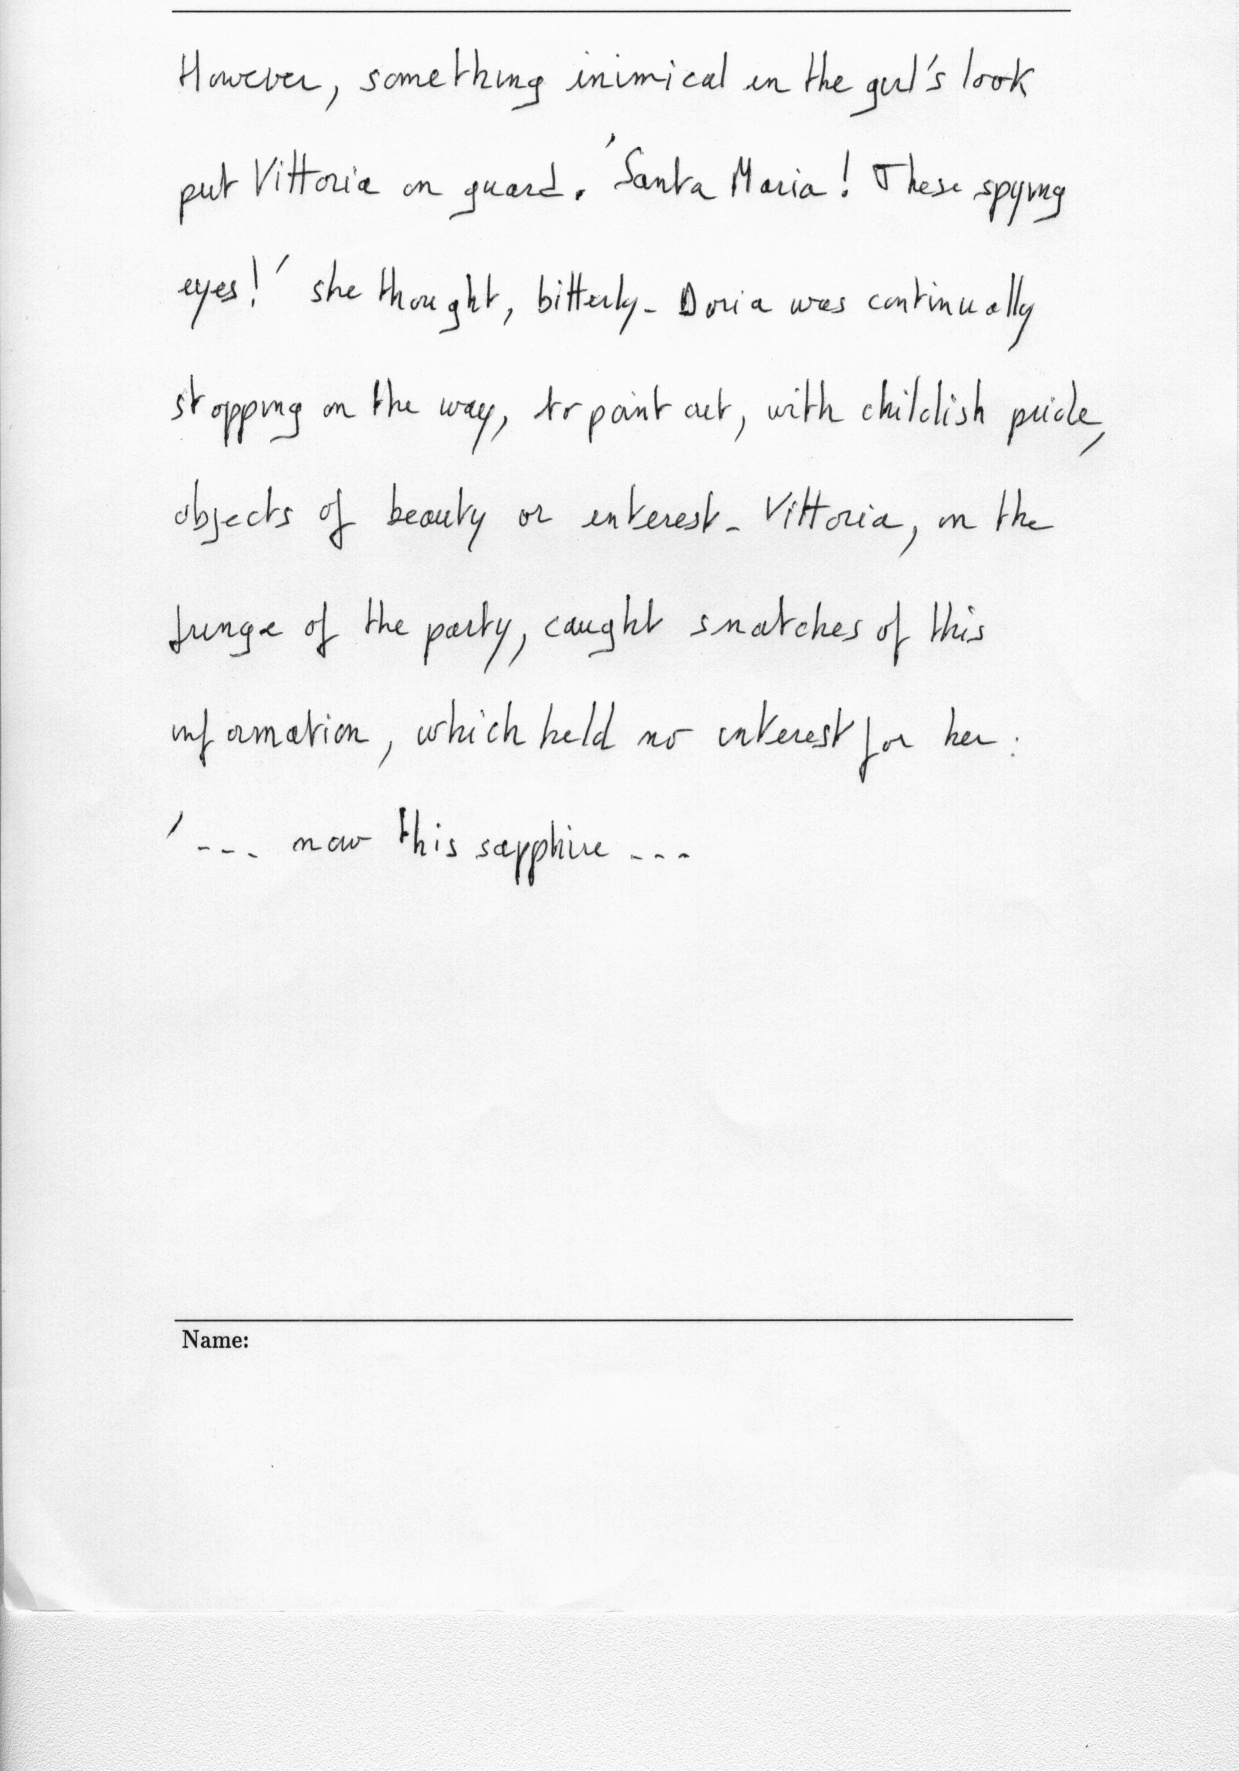 However, something inimical in the girl's look
put Vittoria on guard. 'Santa Maria! These spying
eyes!' she thought, bitterly. Doria was continually
stopping on the way, to point out, with childish pride,
objects of beauty or interest. Vittoria, on the
fringe of the party, caught snatches of this
information, which held no interest for her:
'... now this sapphire ...
Name: